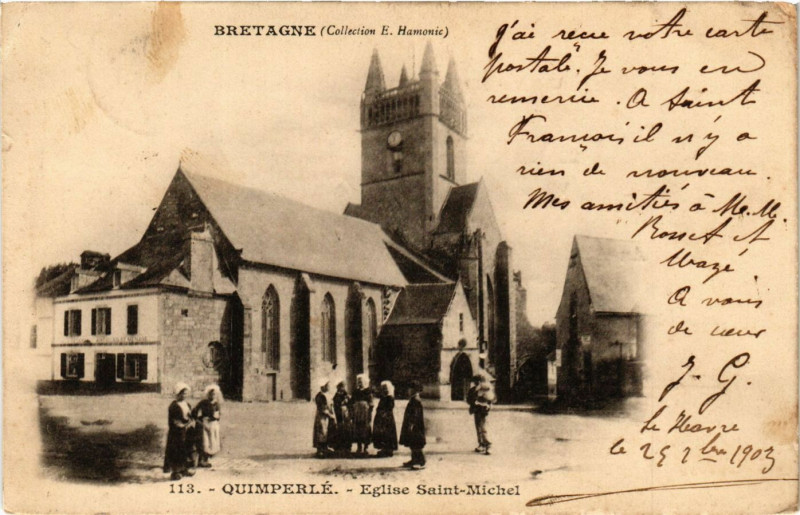 BRETAGNE (Collection E. Hamonic)
J'ai reçue votre carte
postale. Je vous en
remercie. A Saint
François il n'y a
rien de nouveau.
Mes amitiés à M. M.
Rosset et
A vous
de cœur
J. G.
Le Havre
le 25 7bre 1903
113. - QUIMPERLÉ. - Eglise Saint-Michel